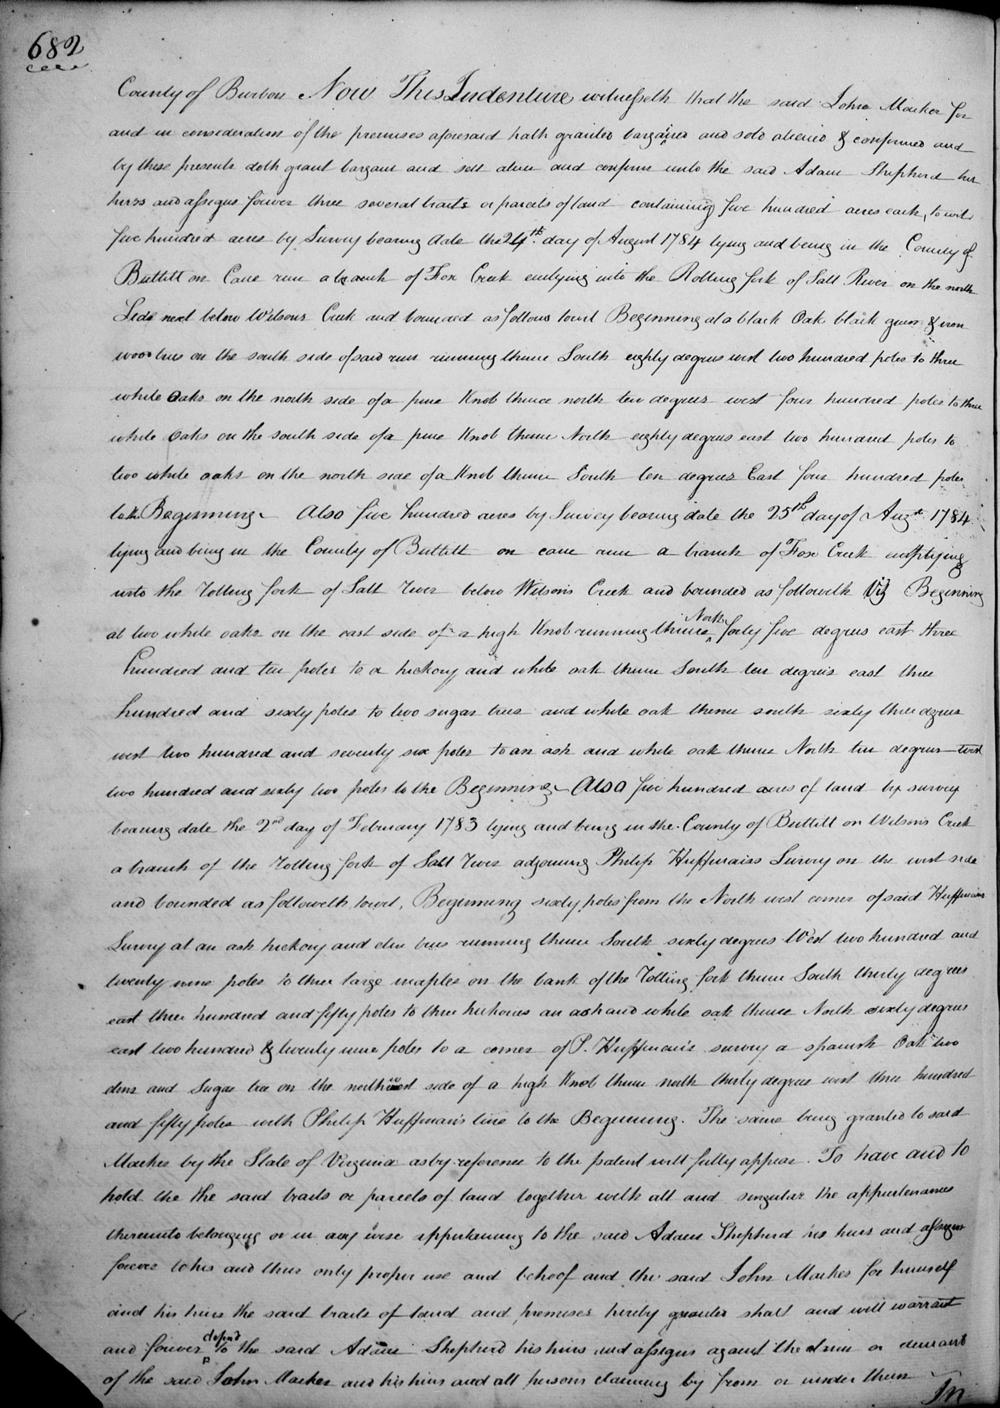 682
County of Burbon Now This Indenture witnesseth that the said John Marker for
and in consideration of the premises aforesaid hath granted bargained and sold aliened & confirmed and
by these presents doth grant bargain and sell alien and confirm unto the said Adam Shepherd his
heirs and assigns forever three several tracts or parcels of land containing five hundred acres each, to wit
five hundred acres by Survey bearing date the 24th day of August 1784 lying and being in the County of
Bullitt on Cane run a branch of Fox Creek emtying into the Rolling fork of Salt River on the north
Side next below Wilsons Creek and bounded as follows towit Beginning at a black Oak black gum & iron
wood tree on the south side of said run running thence South eighty degrees west two hundred poles to three
white Oaks on the north side of a pine Knob thence north ten degrees west four hundred poles to three
white Oaks on the south side of a pine Knob thence North eighty degrees east two hundred poles to
two white oaks on the north side of a Knob thence South ten degrees East four hundred poles
to the Beginning Also five hundred acres by Survey bearing date the 25th day of Augt 1784
lying and being in the County of Bullitt on cane run a branch of Fox Creek
into the rolling fork of Salt river below Wilsons Creek and bounded as followeth Viz Beginning
at two white oaks on the east side of a high Knob running thence North forty five degrees east three
hundred and ten poles to a hickory and white oak thence South ten degrees east three
hundred and sixty poles to two sugar trees and white oak thence south sixty three degrees
west two hundred and seventy six poles to an ash and white oak thence North ten degrees west
two hundred and sixty two poles to the Beginning Also five hundred acres of land by survey
bearing date the 2nd day of February 1783 lying and being in the County of Bullitt on Wilsons Creek
a branch of the rolling fork of Salt river adjoining Philip Huffmans Survey on the west side
and bounded as followeth towit, Beginning sixty poles from the North west corner of said Huffmans
Survey at an ash hickory and elm trees running thence South sixty degrees West two hundred and
twenty nine poles to three large maples on the bank of the rolling fork thence South thirty degrees
east three hundred and fifty poles to three hickories an ash and white oak thence North sixty degrees
east two hundred & twenty nine poles to a corner of P. Huffman's survey a spanish Oak two
elms and Sugar tree on the northwest side of a high Knob thence north thirty degrees west three hundred
and fifty poles with Philip Huffman's line to the Beginning. The same being granted to said
Marker by the State of Virginia as by reference to the patent will fully appear. To have and to
hold the the said tracts or parcels of land together with all and singular the appurtenances
thereunto belonging or in any wise appertaining to the said Adam Shepherd his heirs and assigns
forever to his and their only proper use and behoof and the said John Marker for himself
and his heirs the said tracts of land and premises hereby granted shall and will warrant
and forever defend to the said Adam Shepherd his heirs and assigns against the claim or demand
of the said John Marker and his heirs and all persons claiming by from or under them
In